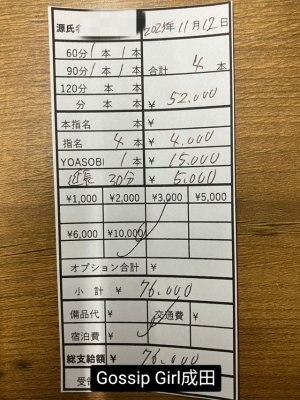 源氏名
2024年11月12日
60分 1本 1本
90分 1本 1本 合計 4本
120分 本 本
分 本 ¥ 52,000
本指名 本 ¥
指名 4本 ¥ 4,000
YOASOBI 1本 ¥ 15,000
延長 30分 ¥ 5,000
¥1,000 ¥2,000 ¥3,000 ¥5,000
¥6,000 ¥10,000
オプション合計 ¥
小計 ¥ 76,000
備品代 ¥ 交通費 ¥
宿泊費 ¥
総支給額 ¥ 76,000
Gossip Girl成田